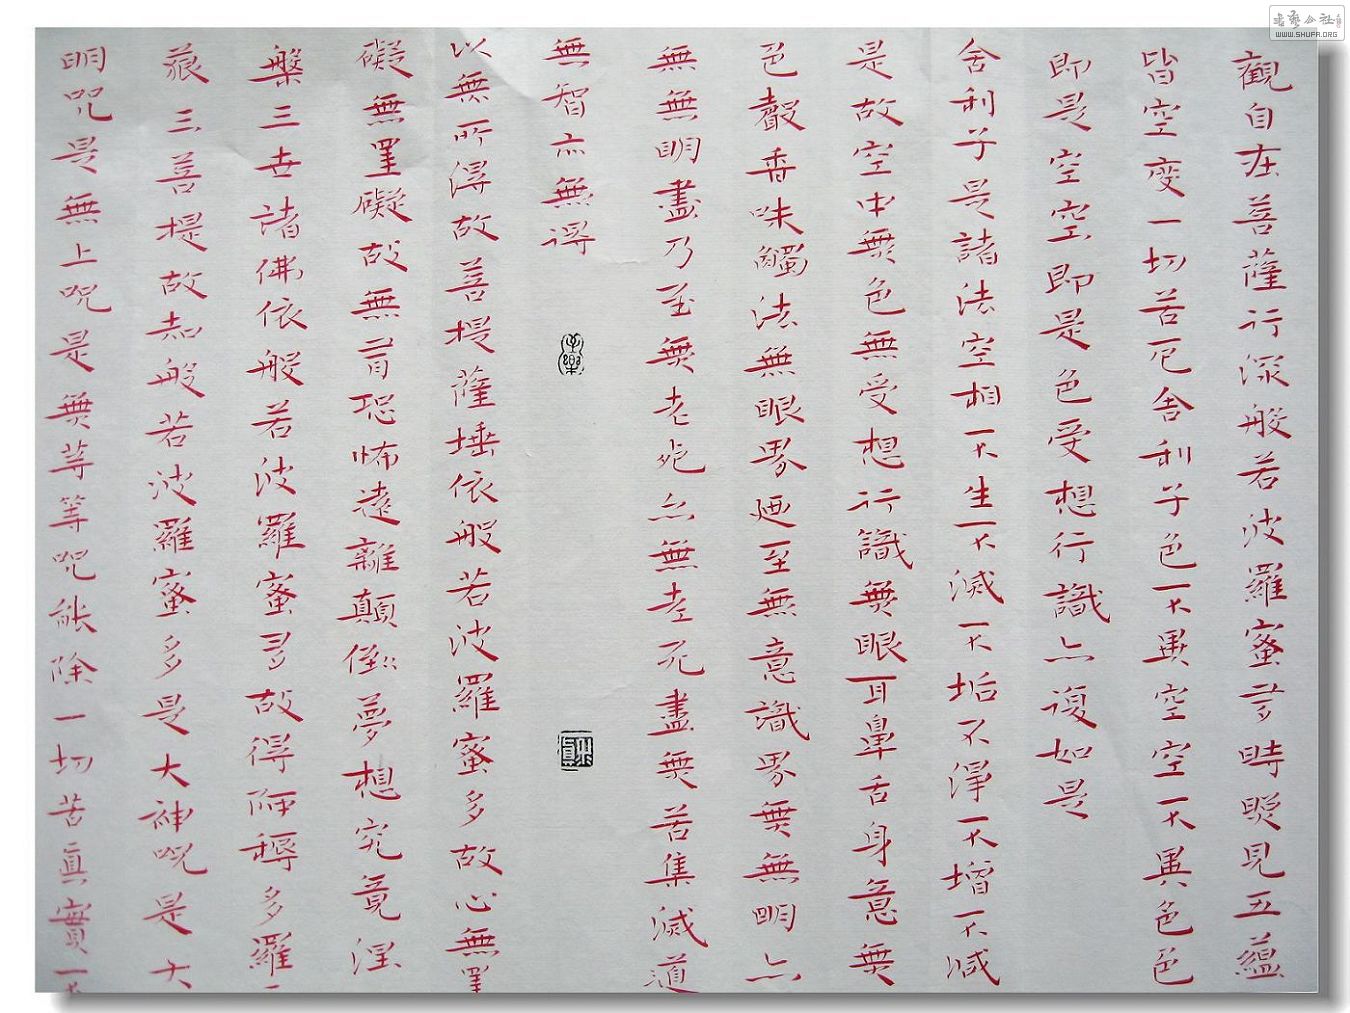 觀自在菩薩行深般若波羅蜜多時照見五蘊
皆空度一切苦厄舍利子色不異空空不異色色
即是空空即是色受想行識亦復如是
舍利子是諸法空相不生不滅不垢不淨不增不減
是故空中無色無受想行識無眼耳鼻舌身意無
色聲香味觸法無眼界廼至無意識界無無明亦
無無明盡乃至無老死亦無老死盡無苦集滅道
無智亦無得
以無所得故菩提薩埵依般若波羅蜜多故心無罣
礙無罣礙故無有恐怖遠離顛倒夢想究竟涅
槃三世諸佛依般若波羅蜜多故得阿耨多羅
藐三菩提故知般若波羅蜜多是大神呪是大
明呪是無上呪是無等等呪能除一切苦真實不
書藝公社
WWW.SHUFA.ORG